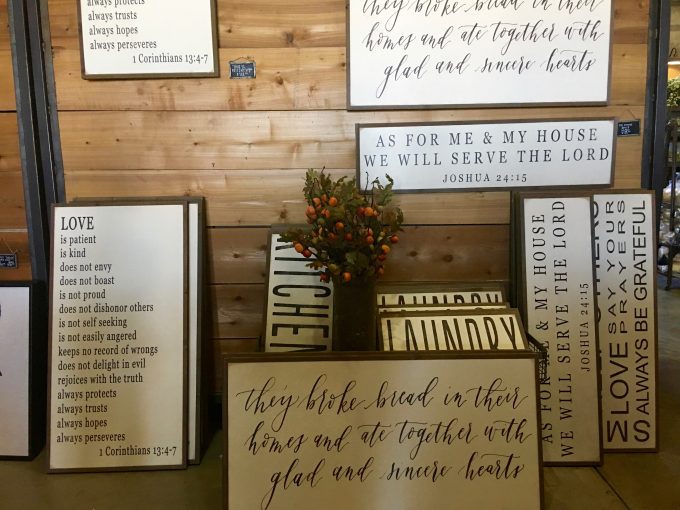 always protects
always trusts
always hopes
always perseveres
1 Corinthians 13:4-7
they broke bread in their
homes and ate together with
glad and sincere hearts
AS FOR ME & MY HOUSE
WE WILL SERVE THE LORD
JOSHUA 24:15
LOVE
is patient
is kind
does not envy
does not boast
is not proud
does not dishonor others
is not self seeking
is not easily angered
keeps no record of wrongs
does not delight in evil
rejoices with the truth
always protects
always trusts
always hopes
always perseveres
1 Corinthians 13:4-7
KITCHEN
LAUNDRY
LAUNDRY
they broke bread in their
homes and ate together with
glad and sincere hearts
AS FOR ME & MY HOUSE
WE WILL SERVE THE LORD
JOSHUA 24:15
LOVE
SAY YOUR
PRAYERS
ALWAYS BE GRATEFUL